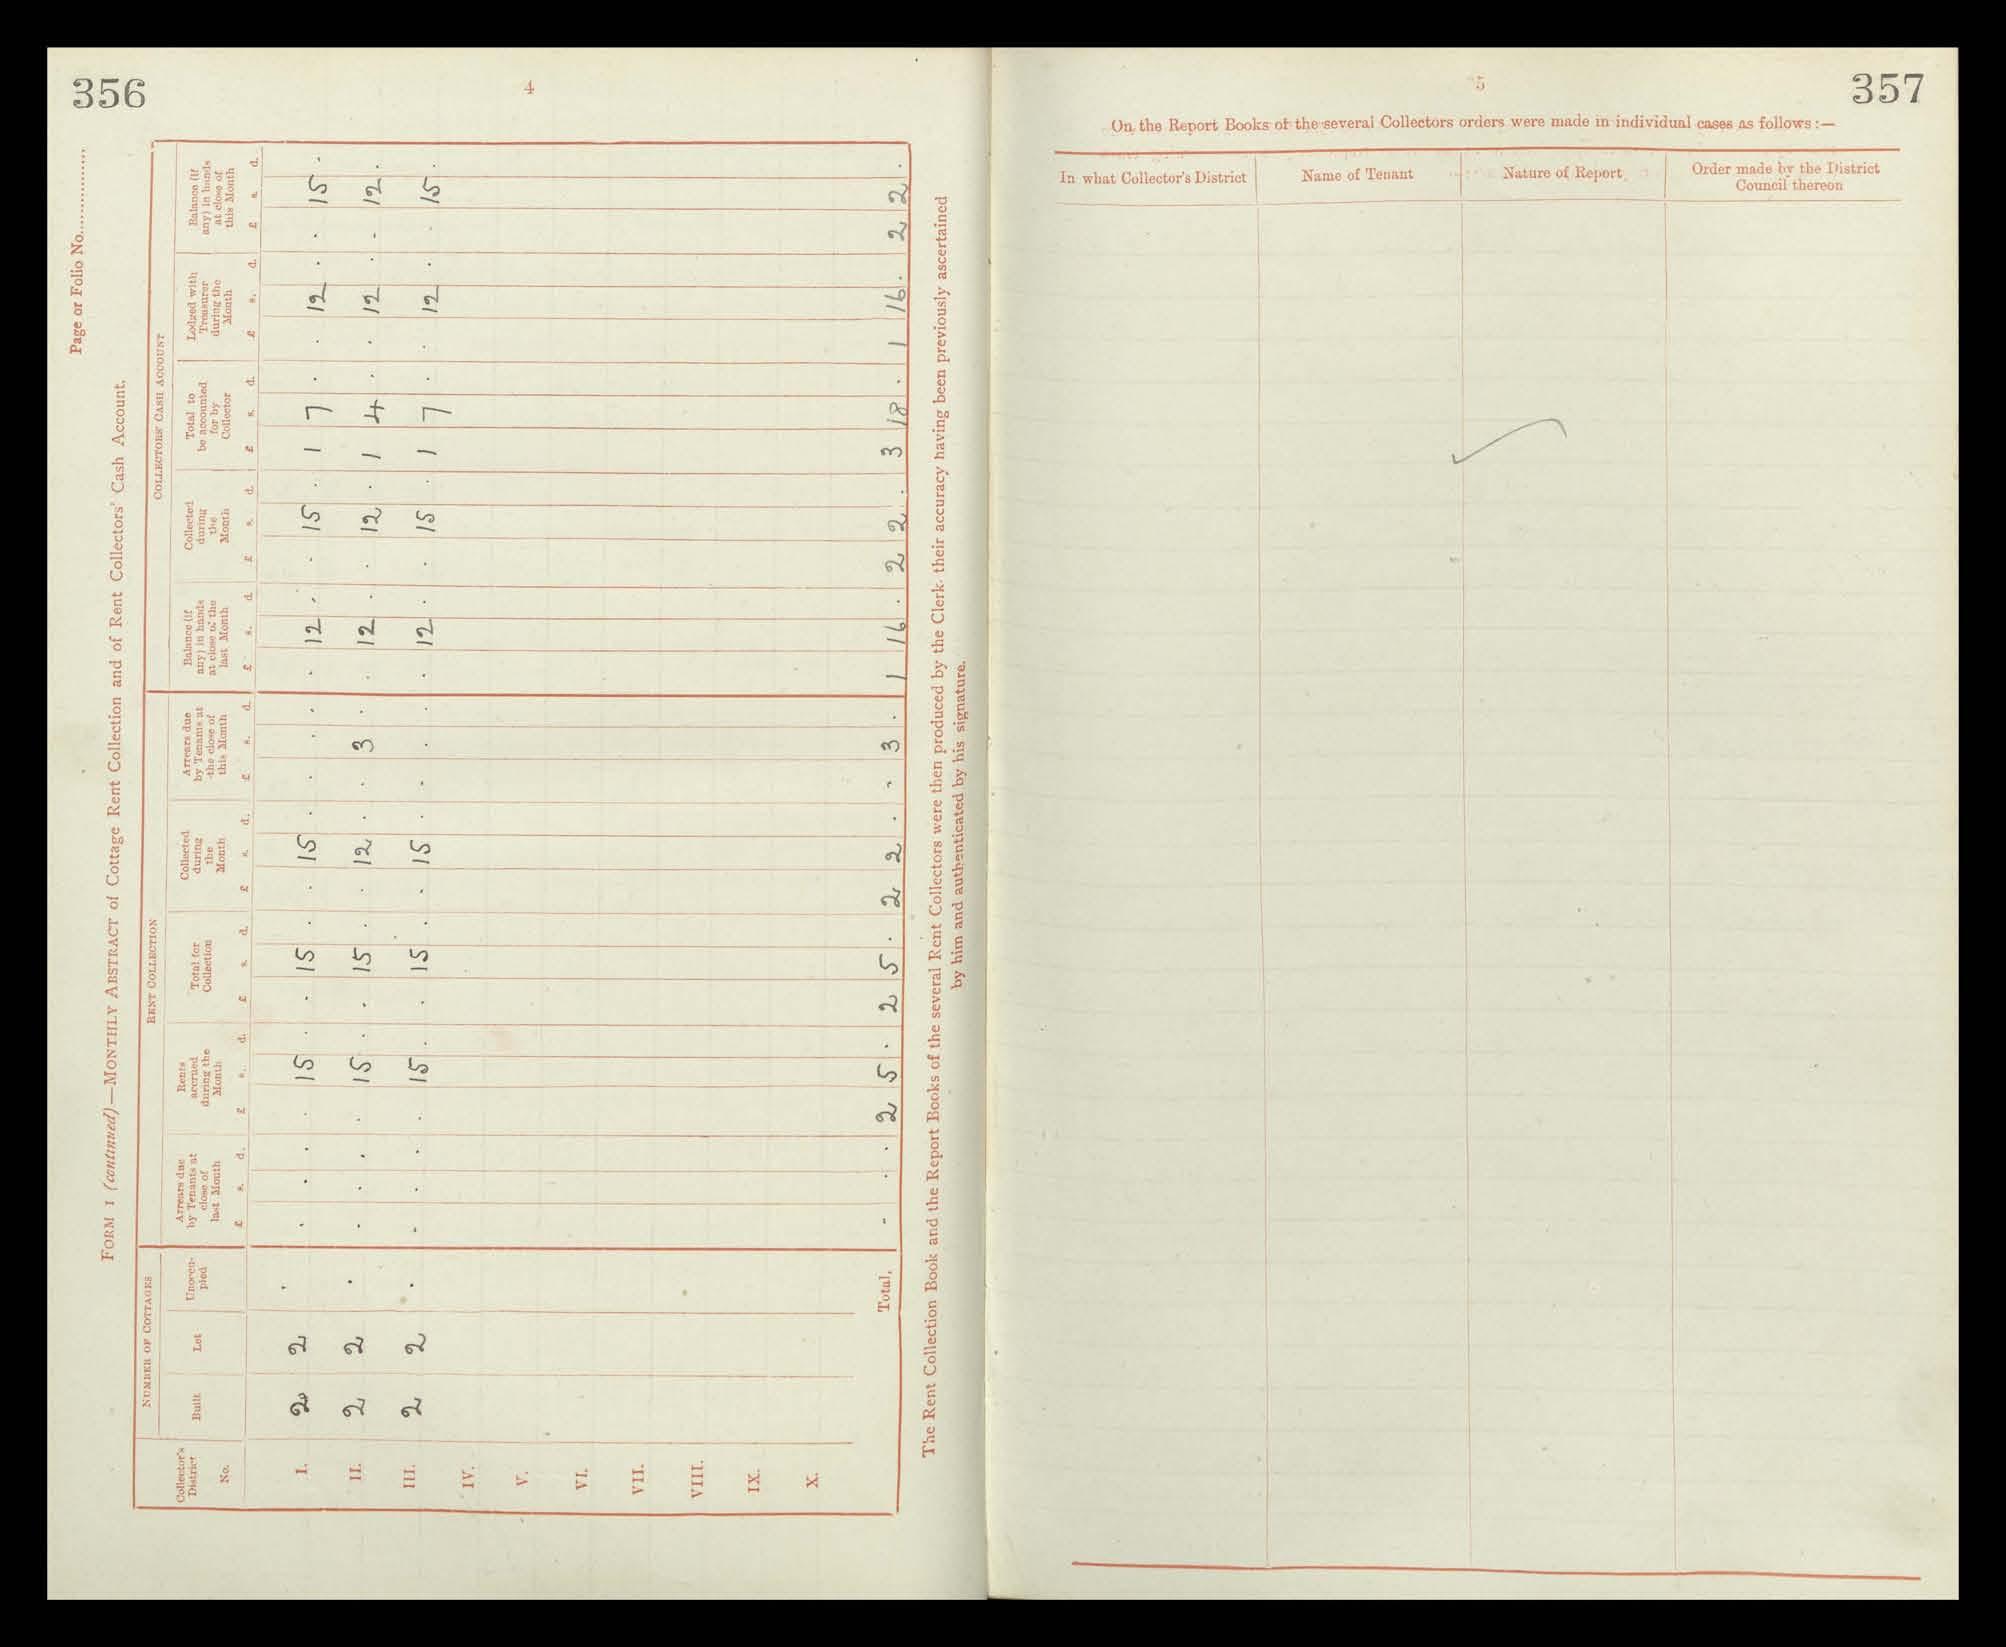 356
4
Page or Folio No.
FORM 1 (continued)—MONTHLY ABSTRACT of Cottage Rent Collection and of Rent Collectors' Cash Account.
NUMBER OF COTTAGES RENT COLLECTION COLLECTORS' CASH ACCOUNT
Collector's District No. Built Let Unoccu-pied Arrears due by Tenants at close of last Month Rents accrued during the Month Total for Collection Collected during the Month Arrears due by Tenants at the close of this Month Balance (if any) in hands at close of the last Month Collected during the Month Total to be accounted for by Collector Lodged with Treasurer during the Month Balance (if any) in hands at close of this Month
£ s. d. £ s. d. £ s. d. £ s. d. £ s. d. £ s. d. £ s. d. £ s. d. £ s. d. £ s. d.
I. 2 2 . . . . . 15 . . 15 . . 15 . . . . . 12 . . 15 . 1 7 . . 12 . . 15 .
II. 2 2 . . . . . 15 . . 15 . . 12 . . 3 . . 12 . . 12 . 1 4 . . 12 . . 12 .
III. 2 2 . . . . . 15 . . 15 . . 15 . . . . . 12 . . 15 . 1 7 . . 12 . . 15 .
IV.
V.
VI.
VII.
VIII.
IX.
X.
Total, - . . 2 5 . 2 5 . 2 2 . . 3 . 1 16 . 2 2 . 3 18 . 1 16 . 2 2 .
The Rent Collection Book and the Report Books of the several Rent Collectors were then produced by the Clerk, their accuracy having been previously ascertained
by him and authenticated by his signature.
5
357
On the Report Books of the several Collectors orders were made in individual cases as follows :—
In what Collector's District Name of Tenant Nature of Report Order made by the District Council thereon